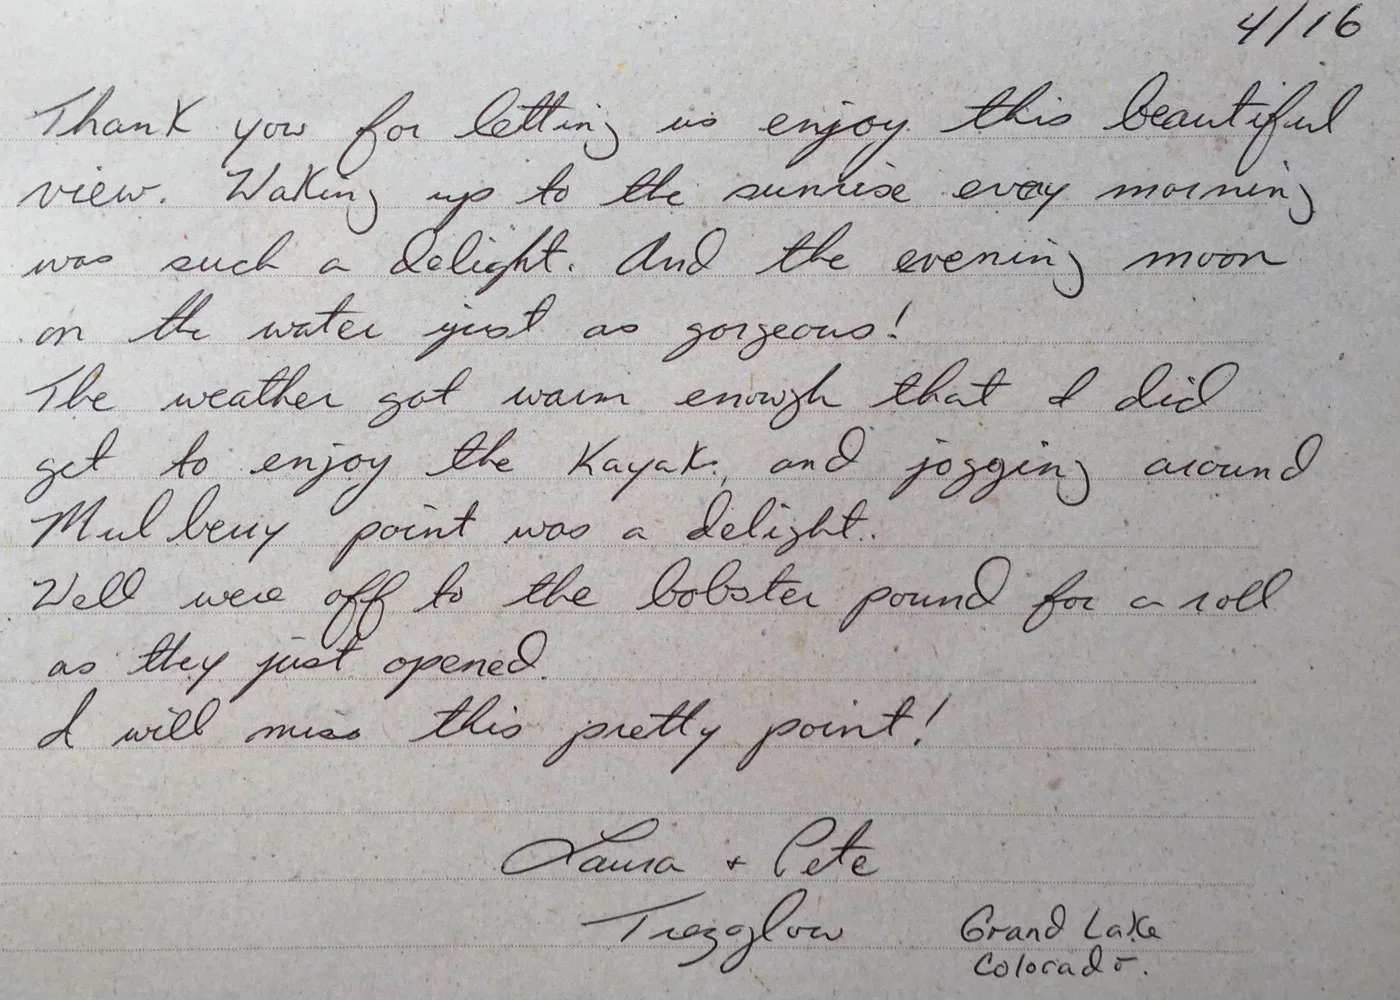 4/16
Thank you for letting us enjoy this beautiful
view. Waking up to the sunrise every morning
was such a delight. And the evening moon
on the water just as gorgeous!
The weather got warm enough that I did
get to enjoy the Kayak, and jogging around
Mulberry point was a delight.
Well were off to the lobster pound for a roll
as they just opened.
I will miss this pretty point!
Laura + Pete
Grand Lake
Colorado.